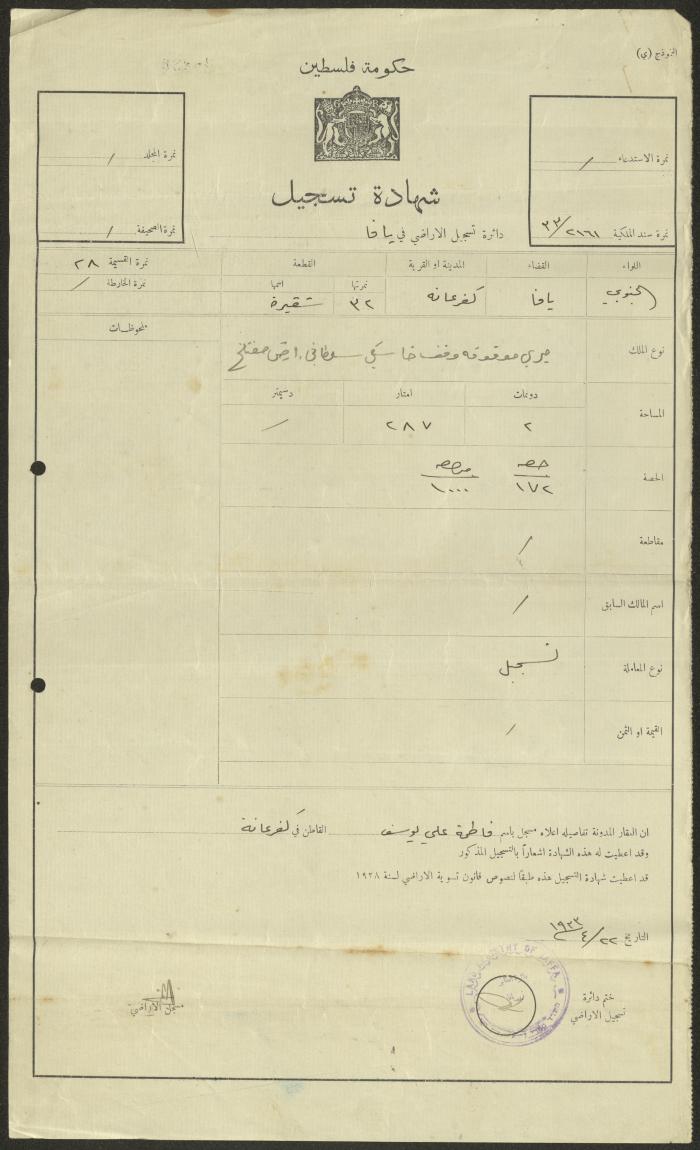 النموذج (ي)
حكومة فلسطين
نمرة الاستدعاء /
نمرة سند الملكية ٢١٦١/٣٣
نمرة المجلد /
نمرة الصحيفة /
شهادة تسجيل
دائرة تسجيل الاراضي في يافا
اللواء القضاء المدينة او القرية القطعة نمرة القسيمة ٢٨
نمرتها اسمها نمرة الخارطة /
الجنوبي يافا كفرعانه ٣٢ شقيرة
ملحوظات
نوع الملك ميري موقوفه وقف خاسكي سلطاني. ارض مفتلح
دونمات امتار دسيمتر
المساحة ٢ ٢٨٧ /
الحصة
حصه من حصه
١٧٢ ١٠٠٠
مقاطعة /
اسم المالك السابق /
نوع المعاملة تسجيل
القيمة او الثمن /
ان العقار المدونة تفاصيله اعلاه مسجل باسم فاطمة علي يوسف القاطن في كفرعانة
وقد اعطيت له هذه الشهادة اشعاراً بالتسجيل المذكور
قد اعطيت شهادة التسجيل هذه طبقا لنصوص قانون تسوية الاراضي لسنة ١٩٢٨
التاريخ ٢٢/٤/١٩٣٣
ختم دائرة
تسجيل الاراضي
مسجل الاراضي
LAND REGISTRY OF JAFFA